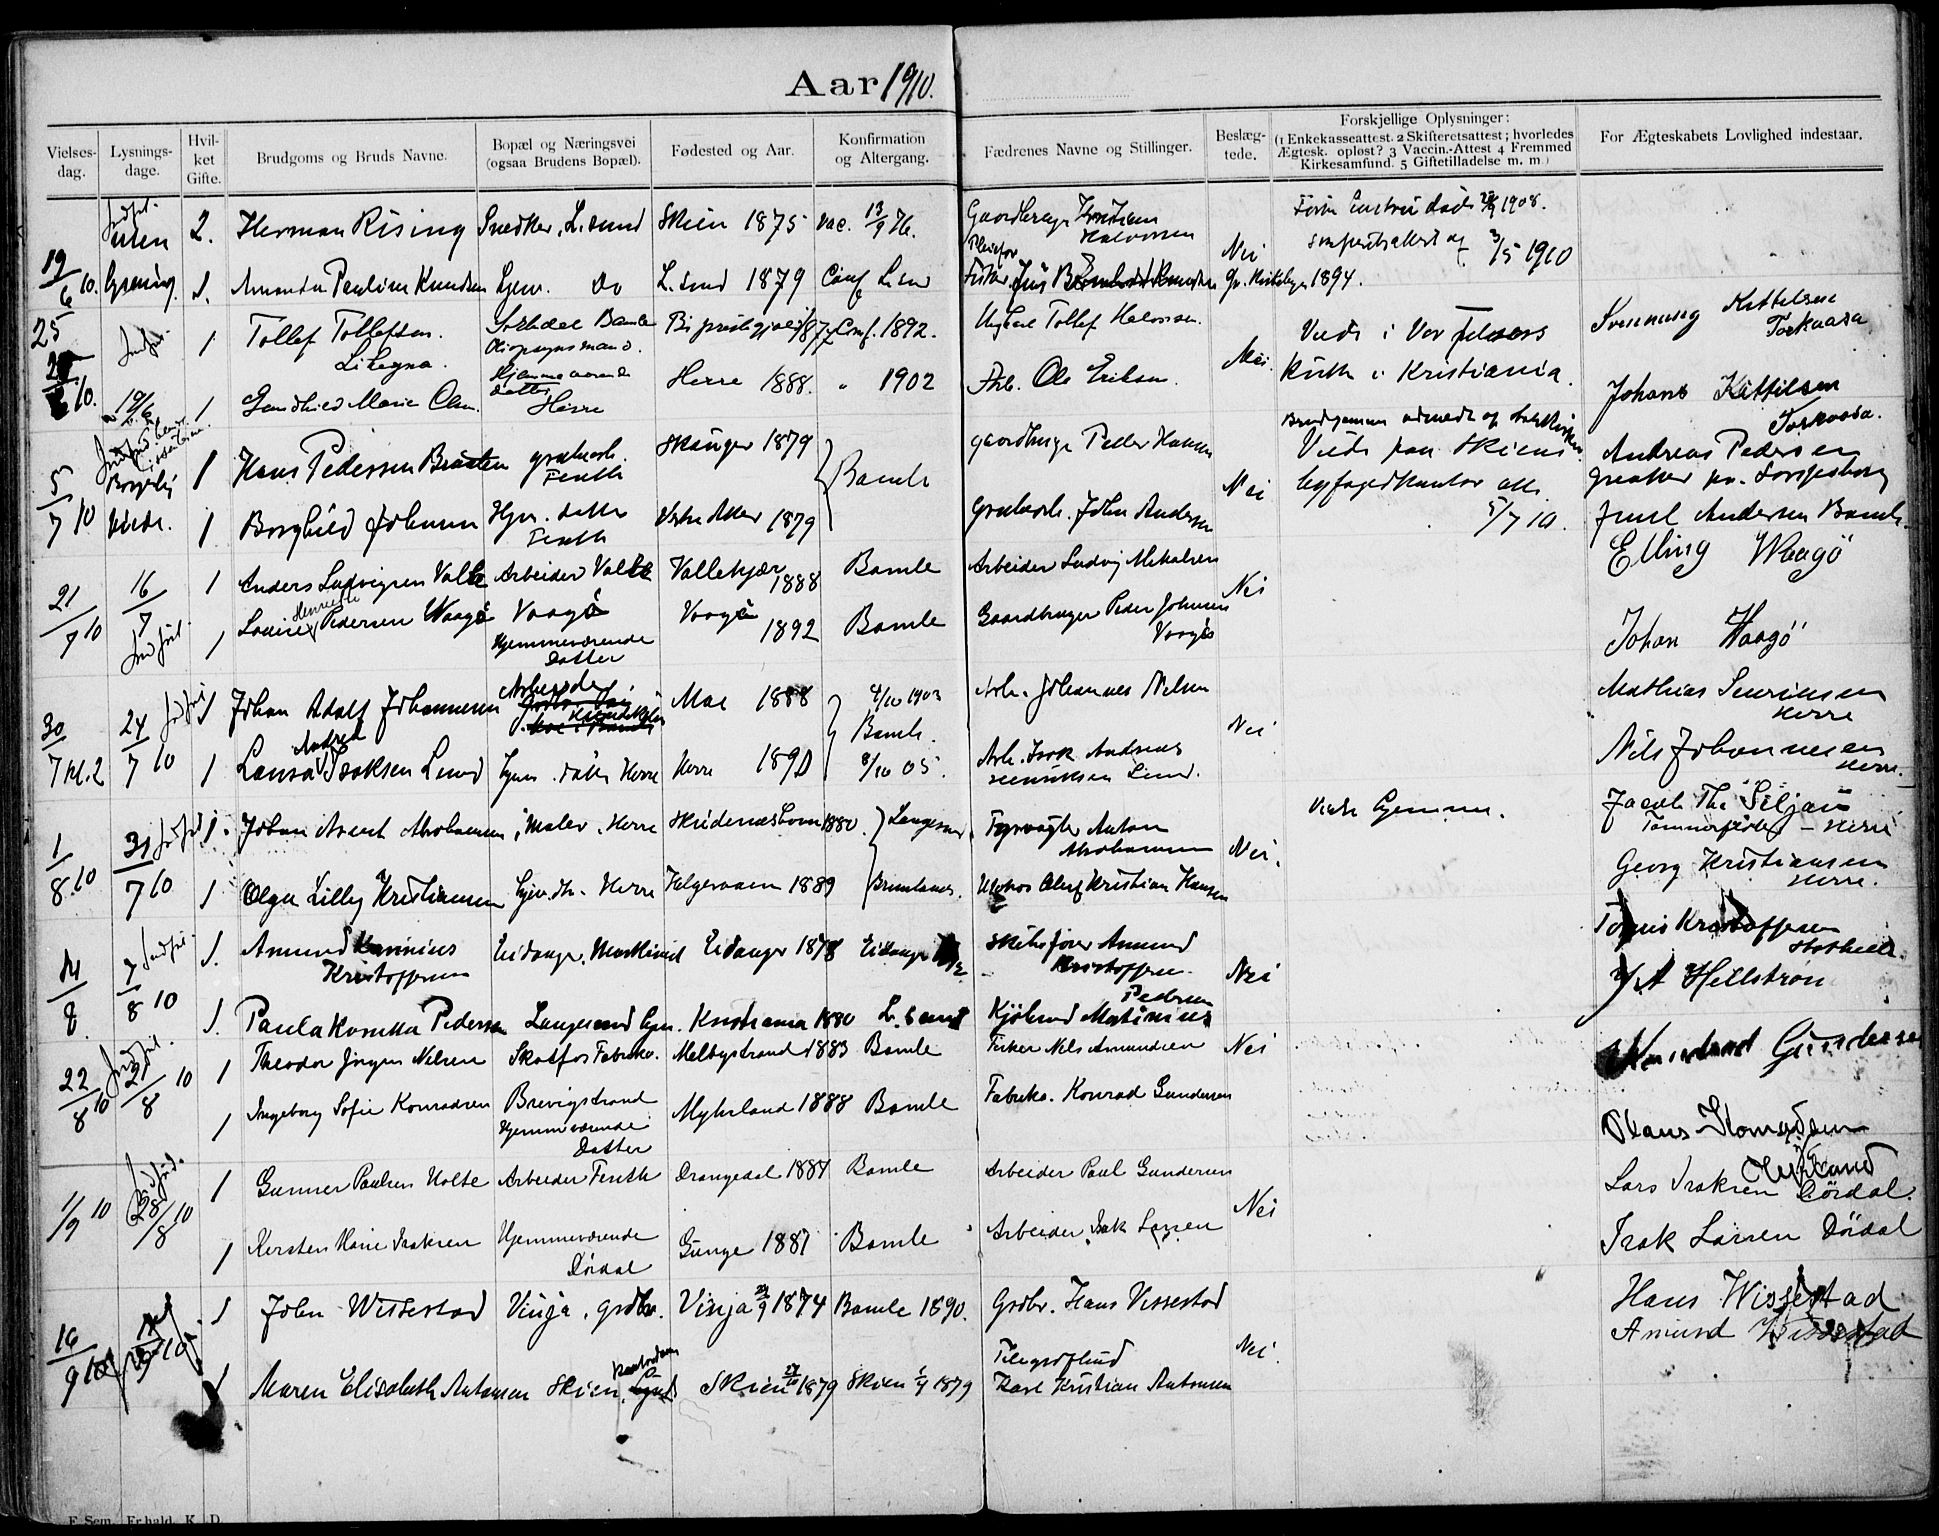 Aar 1910.
Vielses-dag. Lysnings-dage. Hvil-ket Gifte. Brudgoms og Bruds Navne. Bopæl og Næringsvei (ogsaa Brudens Bopæl). Fødested og Aar. Konfirmation og Altergang. Fædrenes Navne og Stillinger. Beslæg-tede. Forskjellige Oplysninger: (1 Enkekasseattest. 2 Skifteretsattest; hvorledes Ægtesk. opløst? 3 Vaccin.-Attest 4 Fremmed Kirkesamfund. 5 Giftetilladelse m. m.) For Ægteskabets Lovlighed indestaar.
19/6 10. uden 2. Herman Rising Snedker, L.sund Skien 1875 vac. 13/9 76. Kristian Halvorsen Nei 1908.
3/5 1910
lysning. 1. Amanda Pauline Knudsen hjem. Do L.sund 1879 Conf. Fisker 1894.
25 1 Tollef Tollefsen Bamle Conf. 1892. Tollef Halvorsen Nei. Viede i Vor frelsers Svennung Kittelsen Torkaasa
10. 19/6 1 Marie Olsen Hjemmeværende datter Herre Herre 1888. " 1902 Arb. Ole Eriksen. Kirke i Kristiania. Johans Kittilsen Torkaasa.
5/7 10 1 Hans Pedersen Braaten grubearb. Feuth Skånger 1879 Bamle gaardbruger Peder Hansen Nei Viede paa Skiens Andreas Pedersen
byfogedkontor
5/7 10.
1 Borghild Johnsen Hjem. datter Feuth Vestre Aker 1879 Grubearb. John Andersen Juul Andersen Bamle.
21/7 10 16/7 1 Anders Ludvigsen Valle Arbeider Valle Vallekjær 1888 Bamle Arbeider Ludvig Mikalsen Nei Elling Waagö
1 Louise Henriette Pedersen Waagö Vaagö Hjemmeværende Datter Vaagö 1892 Bamle Gaardbruger Peder Johnsen Vaagö Johan Waagö
30/7 kl. 2 24/7 10 1 Johan Adolf Johannesen Arbeider Moe 1888 4/10 1903 Bamle. Arb. Johannes Nilsen Nei Mathias Sevrinsen Herre
1 Laura Andrea Isaksen Lund hjem. datter Herre Herre 1890 8/10 05. Arb. Isak Andreas Henriksen Lund. Nils Johannesen Herre.
1/8 10 31/7 10 1. Johan Arent Abrahamsen Maler, Herre Skudeneshavn 1880. Langesund. Fyrvogter Anton Abrahamsen Nei. Viede hjemme. Jacob Th. Siljan Tømmerfløder - Herre
1 Olga Lilly Kristiansen hjem.dtr. Herre Helgeroaen 1889 Brunlanes. Olaf Kristian Hansen Georg Kristiansen Herre.
14/8 7/8 10 1. Amund Kristoffersen Eidanger, Maskinist Eidanger 1878 Eidanger Skibsfører Amund Kristoffersen. Nei Kristoffersen Stathelle.
1. Paula Pedersen Langesund hjem. Kristiania 1880 L.sund Pedersen A Hellström
22/8 10 21/8 10 1 Theodor Jörgen Nilsen Skotfos Fabrika. Melbystrand 1883 Bamle Fisker Nils Amundsen Nei Gundersen
1 Ingeborg Sofie Konradsen Brevigstrand Hjemmeværende Datter Myhrland 1888 Bamle Fabrika. Konrad Gundersen Olaus
1/9 10 28/8 10 1 Gunner Paulsen Holte Arbeider Feuth Drangedal 1884 Bamle Arbeider Paul Gundersen Nei Lars Isaksen Dördal.
1 Kersten Marie Isaksen Hjemmeværende Dördal Gunge 1887 Bamle Arbeider Isak Larsen Isak Larsen Dördal
16/9 10 1 John Wissestad Vinja, grdbr. Vinja 1874 Bamle 1890. Grdbr. Hans Vissestad Nei. Hans Wissestad
Amund Wissestad
1 Maren Elisabeth Antonsen Skien, Skien 1879 Skien 1879 Karl Kristian Antonsen